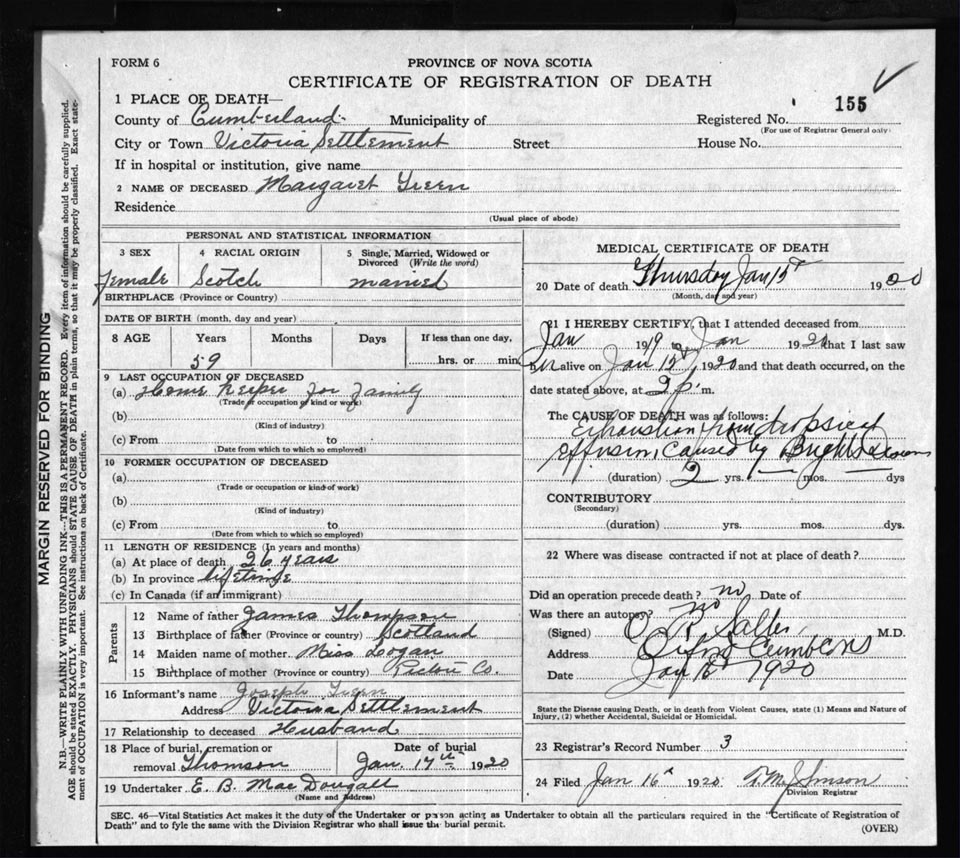 FORM 6
PROVINCE OF NOVA SCOTIA
CERTIFICATE OF REGISTRATION OF DEATH
155
1 PLACE OF DEATH—
County of Cumberland Municipality of Registered No.
(For use of Registrar General only)
City or Town Victoria Settlement Street House No.
If in hospital or institution, give name
2 NAME OF DECEASED Margaret Green
Residence
(Usual place of abode)
PERSONAL AND STATISTICAL INFORMATION
3 SEX 4 RACIAL ORIGIN 5 Single, Married, Widowed or Divorced (Write the word)
Female Scotch married
BIRTHPLACE (Province or Country)
DATE OF BIRTH (month, day and year)
8 AGE Years Months Days If less than one day,
59 hrs. or min.
9 LAST OCCUPATION OF DECEASED
(a) Home Keeper for family
(Trade or occupation or kind of work)
(b)
(Kind of industry)
(c) From to
(Date from which to which so employed)
10 FORMER OCCUPATION OF DECEASED
(a)
(Trade or occupation or kind of work)
(b)
(Kind of industry)
(c) From to
(Date from which to which so employed)
11 LENGTH OF RESIDENCE (In years and months)
(a) At place of death 26 years
(b) In province lifetime
(c) In Canada (if an immigrant)
Parents
12 Name of father James Thompson
13 Birthplace of father (Province or country) Scotland
14 Maiden name of mother Miss Logan
15 Birthplace of mother (Province or country) Pictou Co.
16 Informant's name Joseph Green
Address Victoria Settlement
17 Relationship to deceased Husband
18 Place of burial, cremation or Date of burial
removal Thomson Jan. 17th 1920
19 Undertaker E. B. MacDougall
(Name and Address)
MEDICAL CERTIFICATE OF DEATH
20 Date of death Thursday Jan 15th 1920
(Month, day and year)
21 I HEREBY CERTIFY, that I attended deceased from
Jan 1919 to Jan 1920 that I last saw
her alive on Jan 15th 1920 and that death occurred, on the
date stated above, at 2 p. m.
The CAUSE OF DEATH was as follows:
Exhaustion from dropsical
effusion, caused by Brights Disease
(duration) 2 yrs. mos. dys
CONTRIBUTORY
(Secondary)
(duration) yrs. mos. dys.
22 Where was disease contracted if not at place of death?
Did an operation precede death? no Date of
Was there an autopsy? no
(Signed) M.D.
Address Oxford
Date Jan 1920
State the Disease causing Death, or in death from Violent Causes, state (1) Means and Nature of
Injury, (2) whether Accidental, Suicidal or Homicidal.
23 Registrar's Record Number 3
24 Filed Jan 16th 1920
Division Registrar
SEC. 46—Vital Statistics Act makes it the duty of the Undertaker or person acting as Undertaker to obtain all the particulars required in the "Certificate of Registration of
Death" and to fyle the same with the Division Registrar who shall issue the burial permit.
(OVER)
MARGIN RESERVED FOR BINDING
N.B.—WRITE PLAINLY WITH UNFADING INK—THIS IS A PERMANENT RECORD. Every item of information should be carefully supplied.
AGE should be stated EXACTLY. PHYSICIANS should STATE CAUSE OF DEATH in plain terms, so that it may be properly classified. Exact state-
ment of OCCUPATION is very important. See instructions on back of Certificate.